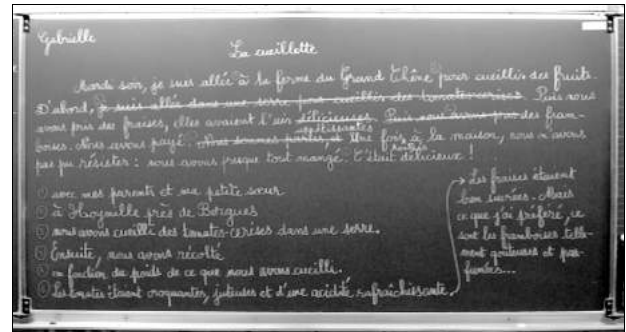 Gabrielle
La cueillette
Mardi soir, je suis allée à la ferme du Grand Chêne pour cueillir des fruits.
D'abord, je suis allée dans une serre pour cueillir des tomates-cerises. Puis nous
avons pris des fraises, elles avaient l'air délicieuses. Puis nous avons pris des fram-
appétissantes
boises. Nous avons payé. Nous sommes partis et Une fois à la maison, nous n'avons
rentrés
pas pu résister : nous avons presque tout mangé. C'était délicieux !
① avec mes parents et ma petite sœur
② à Hoymille près de Bergues
③ nous avons cueilli des tomates-cerises dans une serre.
④ Ensuite, nous avons récolté
⑤ en fonction du poids de ce que nous avons cueilli.
⑥ Les tomates étaient croquantes, juteuses et d'une acidité rafraîchissante.
→ Les fraises étaient
bien sucrées. Mais
ce que j'ai préféré, ce
sont les framboises telle-
ment goûteuses et par-
fumées...